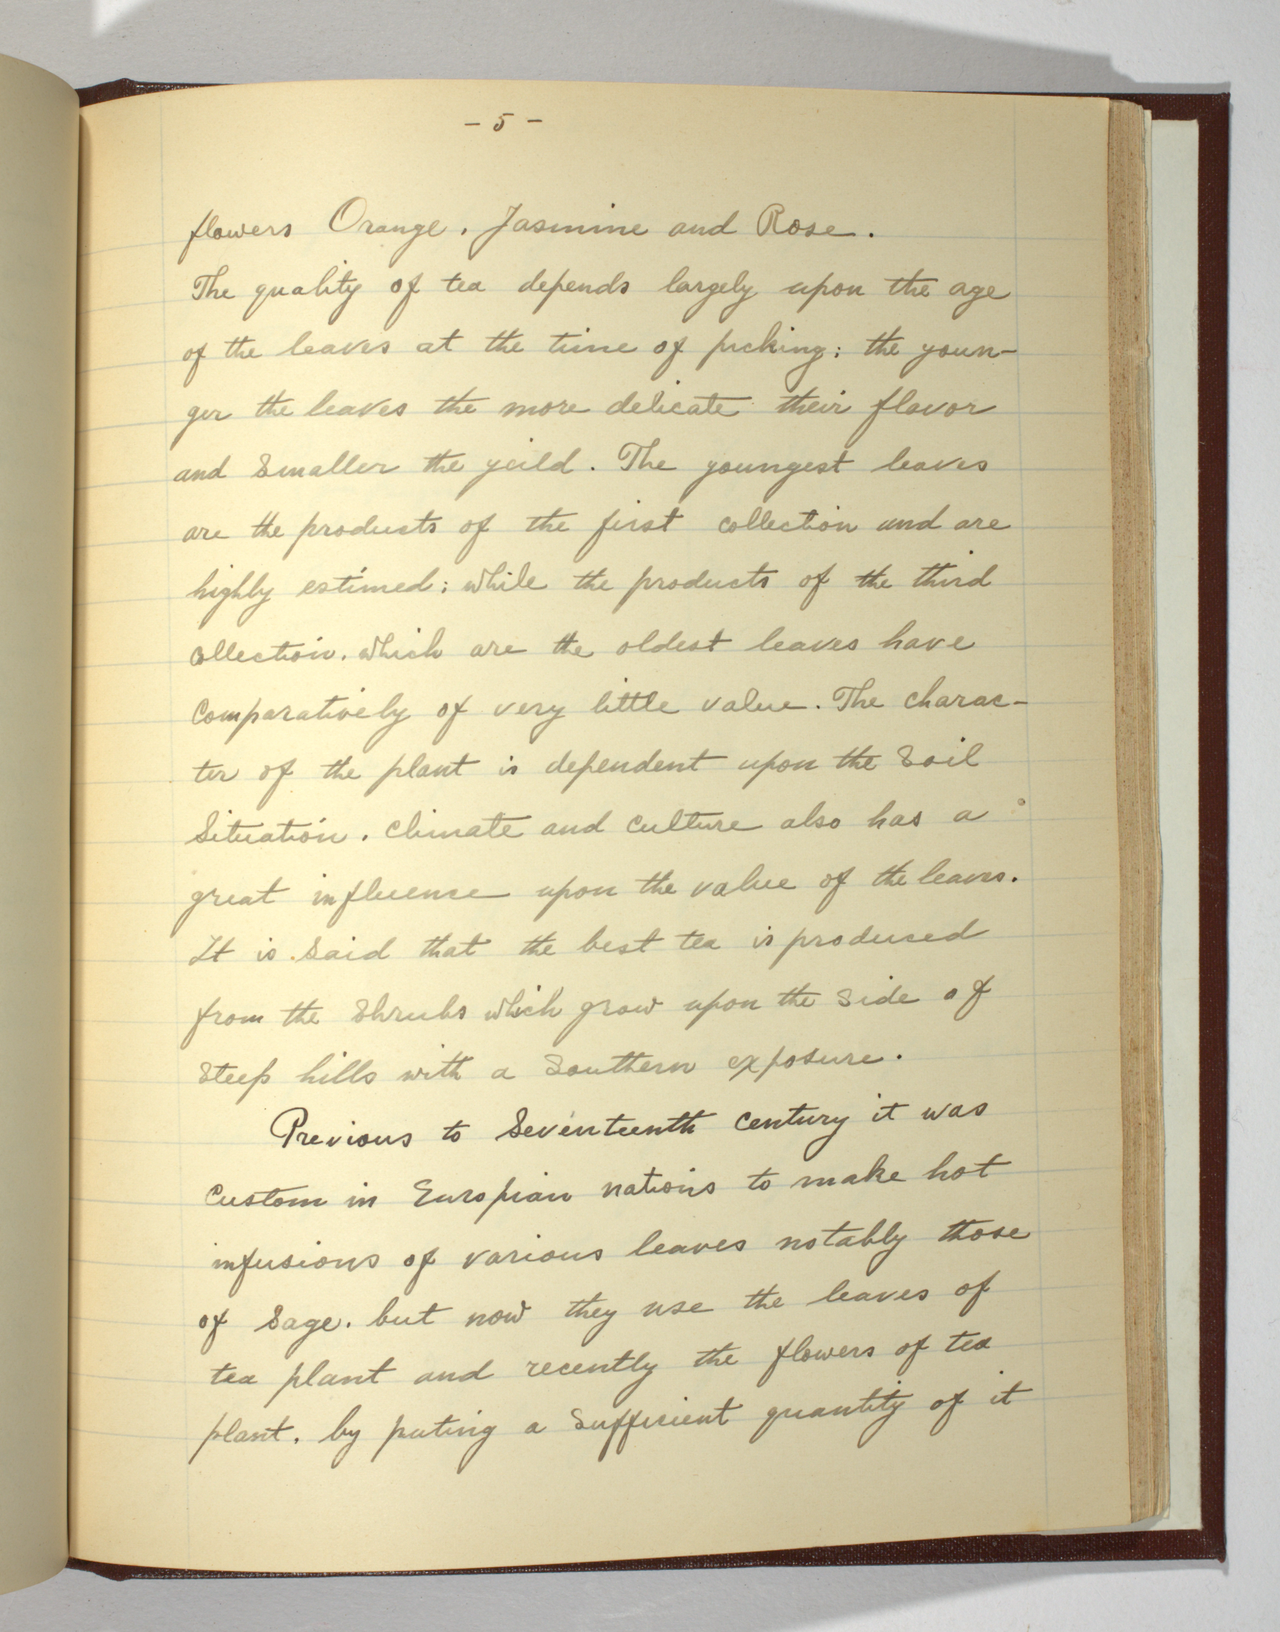 - 5 -
flowers Orange, Jasmine and Rose.
The quality of tea depends largely upon the age
of the leaves at the time of picking; the youn-
ger the leaves the more delicate their flavor
and Smaller the yeild. The youngest leaves
are the products of the first collection and are
highly estimed; while the products of the third
Collection, which are the oldest leaves have
Comparatively of very little value. The charac-
ter of the plant is dependent upon the Soil
Situation. Climate and Culture also has a
great influence upon the value of the leaves.
It is Said that the best tea is produced
from the Shrubs which grow upon the Side of
Steep hills with a Southern exposure.
Previous to Seventeenth Century it was
Custom in Europian nations to make hot
infusions of various leaves notably those
of Sage. but now they use the leaves of
tea plant and recently the flowers of tea
plant. by puting a Sufficient quantity of it